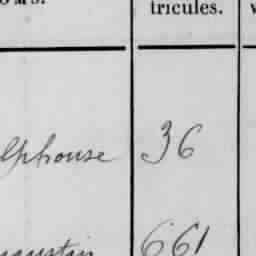 tricules.
lphouse 36
gustin 661